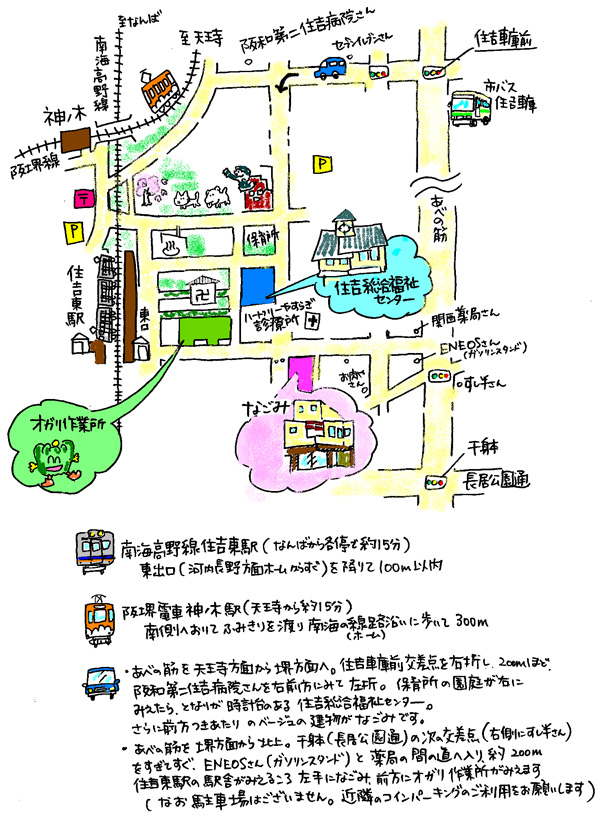 至なんば
至天王寺
阪和第二住吉病院さん
セブンイレブンさん
住吉車庫前
市バス
住吉車庫
南海高野線
神ノ木
阪堺線
〒
P
P
あべの筋
保育所
住吉総合福祉
センター
住吉東駅
東口
卍
ハートフリーやすらぎ
診療所
関西薬局さん
ENEOSさん
(ガソリンスタンド)
お肉やさん
すし半さん
なごみ
オガリ作業所
千躰
長居公園通
南海高野線住吉東駅(なんばから各停で約15分)
東出口(河内長野方面ホームからすぐ)を降りて100m以内
阪堺電車神ノ木駅(天王寺から約15分)
南側へおりてふみきりを渡り南海の線路沿いに歩いて300m
(ホーム)
・あべの筋を天王寺方面から堺方面へ。住吉車庫前交差点を右折し、200mほど、
阪和第二住吉病院さんを右前方にみて左折。保育所の園庭が右に
みえたら、となりが時計台のある住吉総合福祉センター。
さらに前方つきあたりのベージュの建物がなごみです。
・あべの筋を堺方面から北上。千躰(長居公園通)の次の交差点(右側にすし半さん)
をすぎとすぐ、ENEOSさん(ガソリンスタンド)と薬局の間の道へ入り、約200m
住吉東駅の駅舎がみえるころ左手になごみ、前方にオガリ作業所がみえます
(なお駐車場はございません。近隣のコインパーキングのご利用をお願いします)